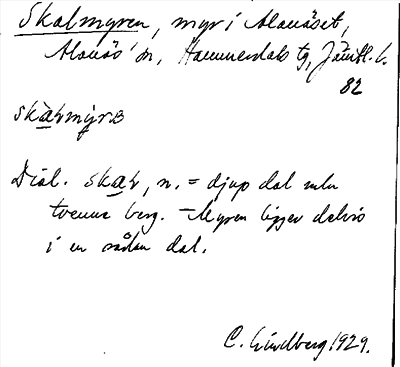 Skalmyren, myr i Alanäset,
Alanäs sn, Hammerdals tg, Jämtl. l.
82
skàlmy̡ra
Dial. skal, n. = djup dal mln
tvenne berg. – Myren ligger delvis
i en sådan dal.
C. Lindberg 1929.